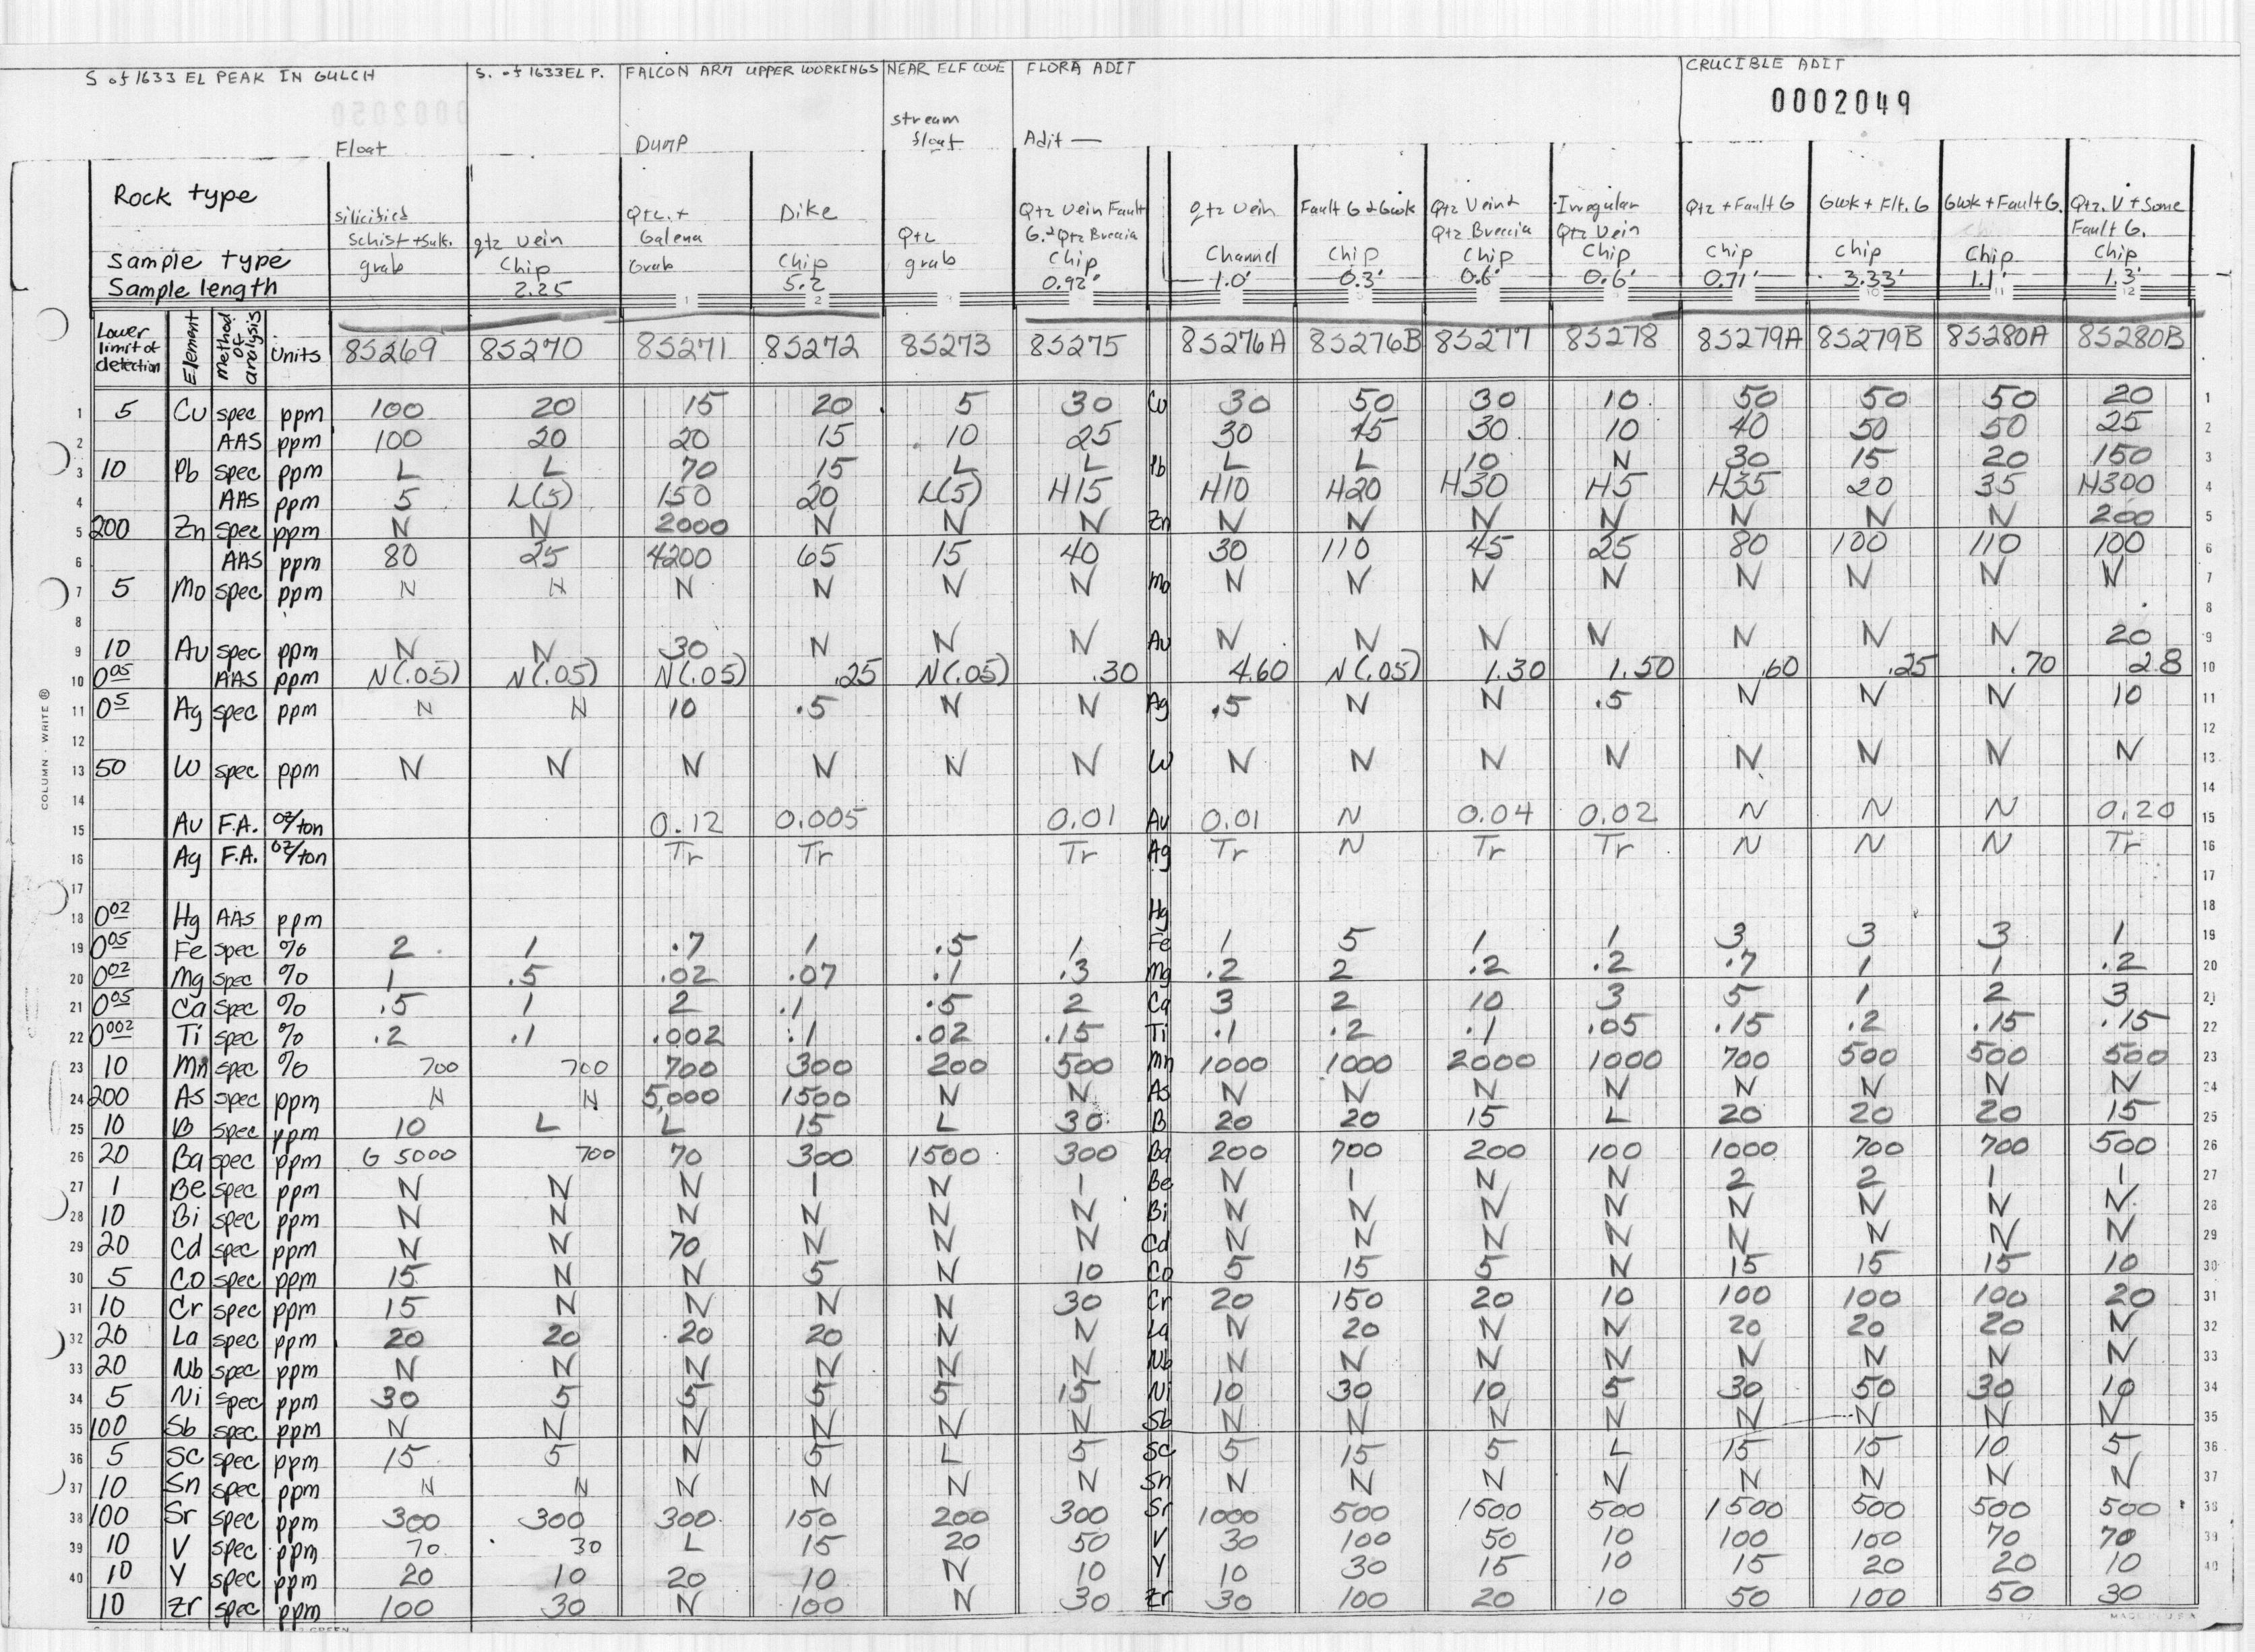 S of 1633 EL PEAK IN GULCH S. of 1633 EL P. FALCON ARM UPPER WORKINGS NEAR ELF COVE FLORA ADIT CRUCIBLE ADIT
0002049
Float Dump stream float Adit —
Rock type silicified Schist + Sulf. qtz vein Qtz. + Galena Dike Qtz Qtz Vein Fault G. + Qtz Breccia qtz Vein Fault G + Gwk Qtz Vein + Qtz Breccia Irregular Qtz Vein Qtz + Fault G Gwk + Flt. G Gwk + Fault G. Qtz. V + Some Fault G.
Sample type grab Chip Grab Chip grab Chip Channel Chip Chip Chip Chip Chip Chip Chip
Sample length 2.25 5.2 0.92' 1.0' 0.3' 0.6' 0.6' 0.71' 3.33' 1.1' 1.3'
Lower limit of detection Element method of analysis Units 8S269 8S270 8S271 8S272 8S273 8S275 8S276A 8S276B 8S277 8S278 8S279A 8S279B 8S280A 8S280B
1 5 Cu spec ppm 100 20 15 20 5 30 Cu 30 50 30 10 50 50 50 20 1
2 AAS ppm 100 20 20 15 10 25 30 45 30 10 40 50 50 25 2
3 10 Pb spec ppm L L 70 15 L L Pb L L 10 N 30 15 20 150 3
4 AAS ppm 5 L(5) 150 20 L(5) H15 H10 H20 H30 H5 H35 20 35 H300 4
5 200 Zn spec ppm N N 2000 N N N Zn N N N N N N N 200 5
6 AAS ppm 80 25 4200 65 15 40 30 110 45 25 80 100 110 100 6
7 5 Mo spec ppm N N N N N N Mo N N N N N N N N 7
8 8
9 10 Au spec ppm N N 30 N N N Au N N N N N N N 20 9
10 0.05 AAS ppm N(.05) N(.05) N(.05) .25 N(.05) .30 4.60 N(.05) 1.30 1.50 .60 .25 .70 2.8 10
11 0.5 Ag spec ppm N N 10 .5 N N Ag .5 N N .5 N N N 10 11
12 12
13 50 W spec ppm N N N N N N W N N N N N N N N 13
14 14
15 Au F.A. oz/ton 0.12 0.005 0.01 Au 0.01 N 0.04 0.02 N N N 0.20 15
16 Ag F.A. oz/ton Tr Tr Tr Ag Tr N Tr Tr N N N Tr 16
17 17
18 0.02 Hg AAS ppm Hg 18
19 0.05 Fe spec % 2 1 .7 1 .5 1 Fe 1 5 1 1 3 3 3 1 19
20 0.02 Mg spec % 1 .5 .02 .07 .1 .3 Mg .2 2 .2 .2 .7 1 1 .2 20
21 0.05 Ca spec % .5 1 2 .1 .5 2 Ca 3 2 10 3 5 1 2 3 21
22 0.002 Ti spec % .2 .1 .002 .1 .02 .15 Ti .1 .2 .1 .05 .15 .2 .15 .15 22
23 10 Mn spec % 700 700 700 300 200 500 Mn 1000 1000 2000 1000 700 500 500 500 23
24 200 As spec ppm N N 5,000 1500 N N As N N N N N N N N 24
25 10 B spec ppm 10 L L 15 L 30 B 20 20 15 L 20 20 20 15 25
26 20 Ba spec ppm G 5000 700 70 300 1500 300 Ba 200 700 200 100 1000 700 700 500 26
27 1 Be spec ppm N N N 1 N 1 Be N 1 N N 2 2 1 1 27
28 10 Bi spec ppm N N N N N N Bi N N N N N N N N 28
29 20 Cd spec ppm N N 70 N N N Cd N N N N N N N N 29
30 5 Co spec ppm 15 N N 5 N 10 Co 5 15 5 N 15 15 15 10 30
31 10 Cr spec ppm 15 N N N N 30 Cr 20 150 20 10 100 100 100 20 31
32 20 La spec ppm 20 20 20 20 N N La N 20 N N 20 20 20 N 32
33 20 Nb spec ppm N N N N N N Nb N N N N N N N N 33
34 5 Ni spec ppm 30 5 5 5 5 15 Ni 10 30 10 5 30 50 30 10 34
35 100 Sb spec ppm N N N N N N Sb N N N N N N N N 35
36 5 Sc spec ppm 15 5 N 5 L 5 Sc 5 15 5 L 15 15 10 5 36
37 10 Sn spec ppm N N N N N N Sn N N N N N N N N 37
38 100 Sr spec ppm 300 300 300 150 200 300 Sr 1000 500 1500 500 1500 500 500 500 38
39 10 V spec ppm 70 30 L 15 20 50 V 30 100 50 10 100 100 70 70 39
40 10 Y spec ppm 20 10 20 10 N 10 Y 10 30 15 10 15 20 20 10 40
10 Zr spec ppm 100 30 N 100 N 30 Zr 30 100 20 10 50 100 50 30
COLUMN - WRITE ®
MADE IN U.S.A